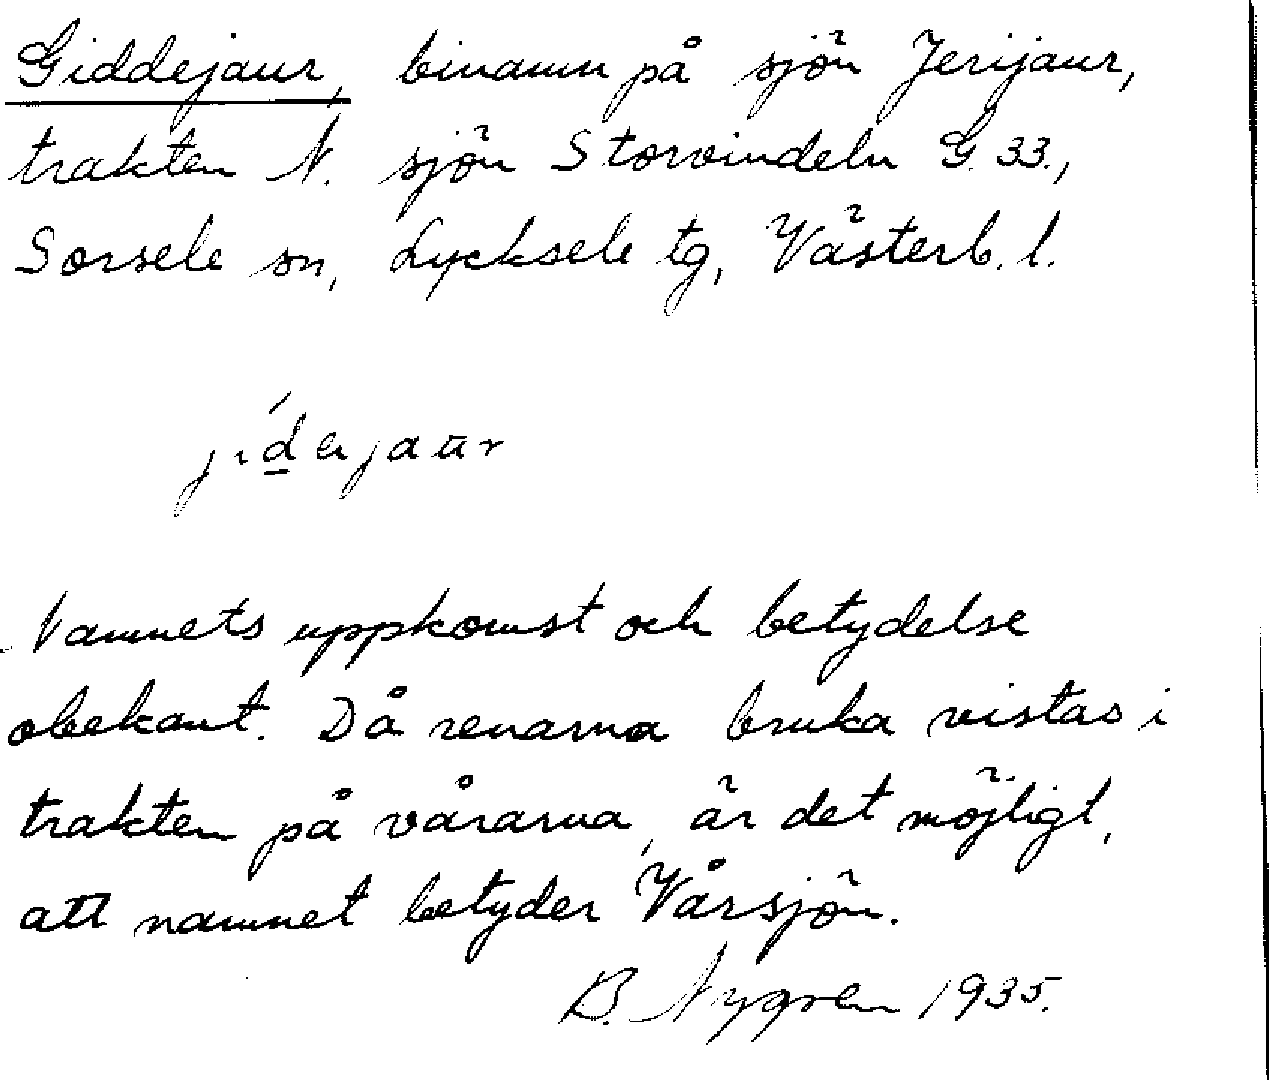 Giddejaur, binamn på sjön Jerijaur,
trakten N. sjön Storvindeln G. 33.,
Sorsele sn, Lycksele tg, Västerb. l.
Namnets uppkomst och betydelse
obekant. Då renarna bruka vistas i
trakten på vårarna, är det möjligt,
att namnet betyder Vårsjön.
B. Nygren 1935.